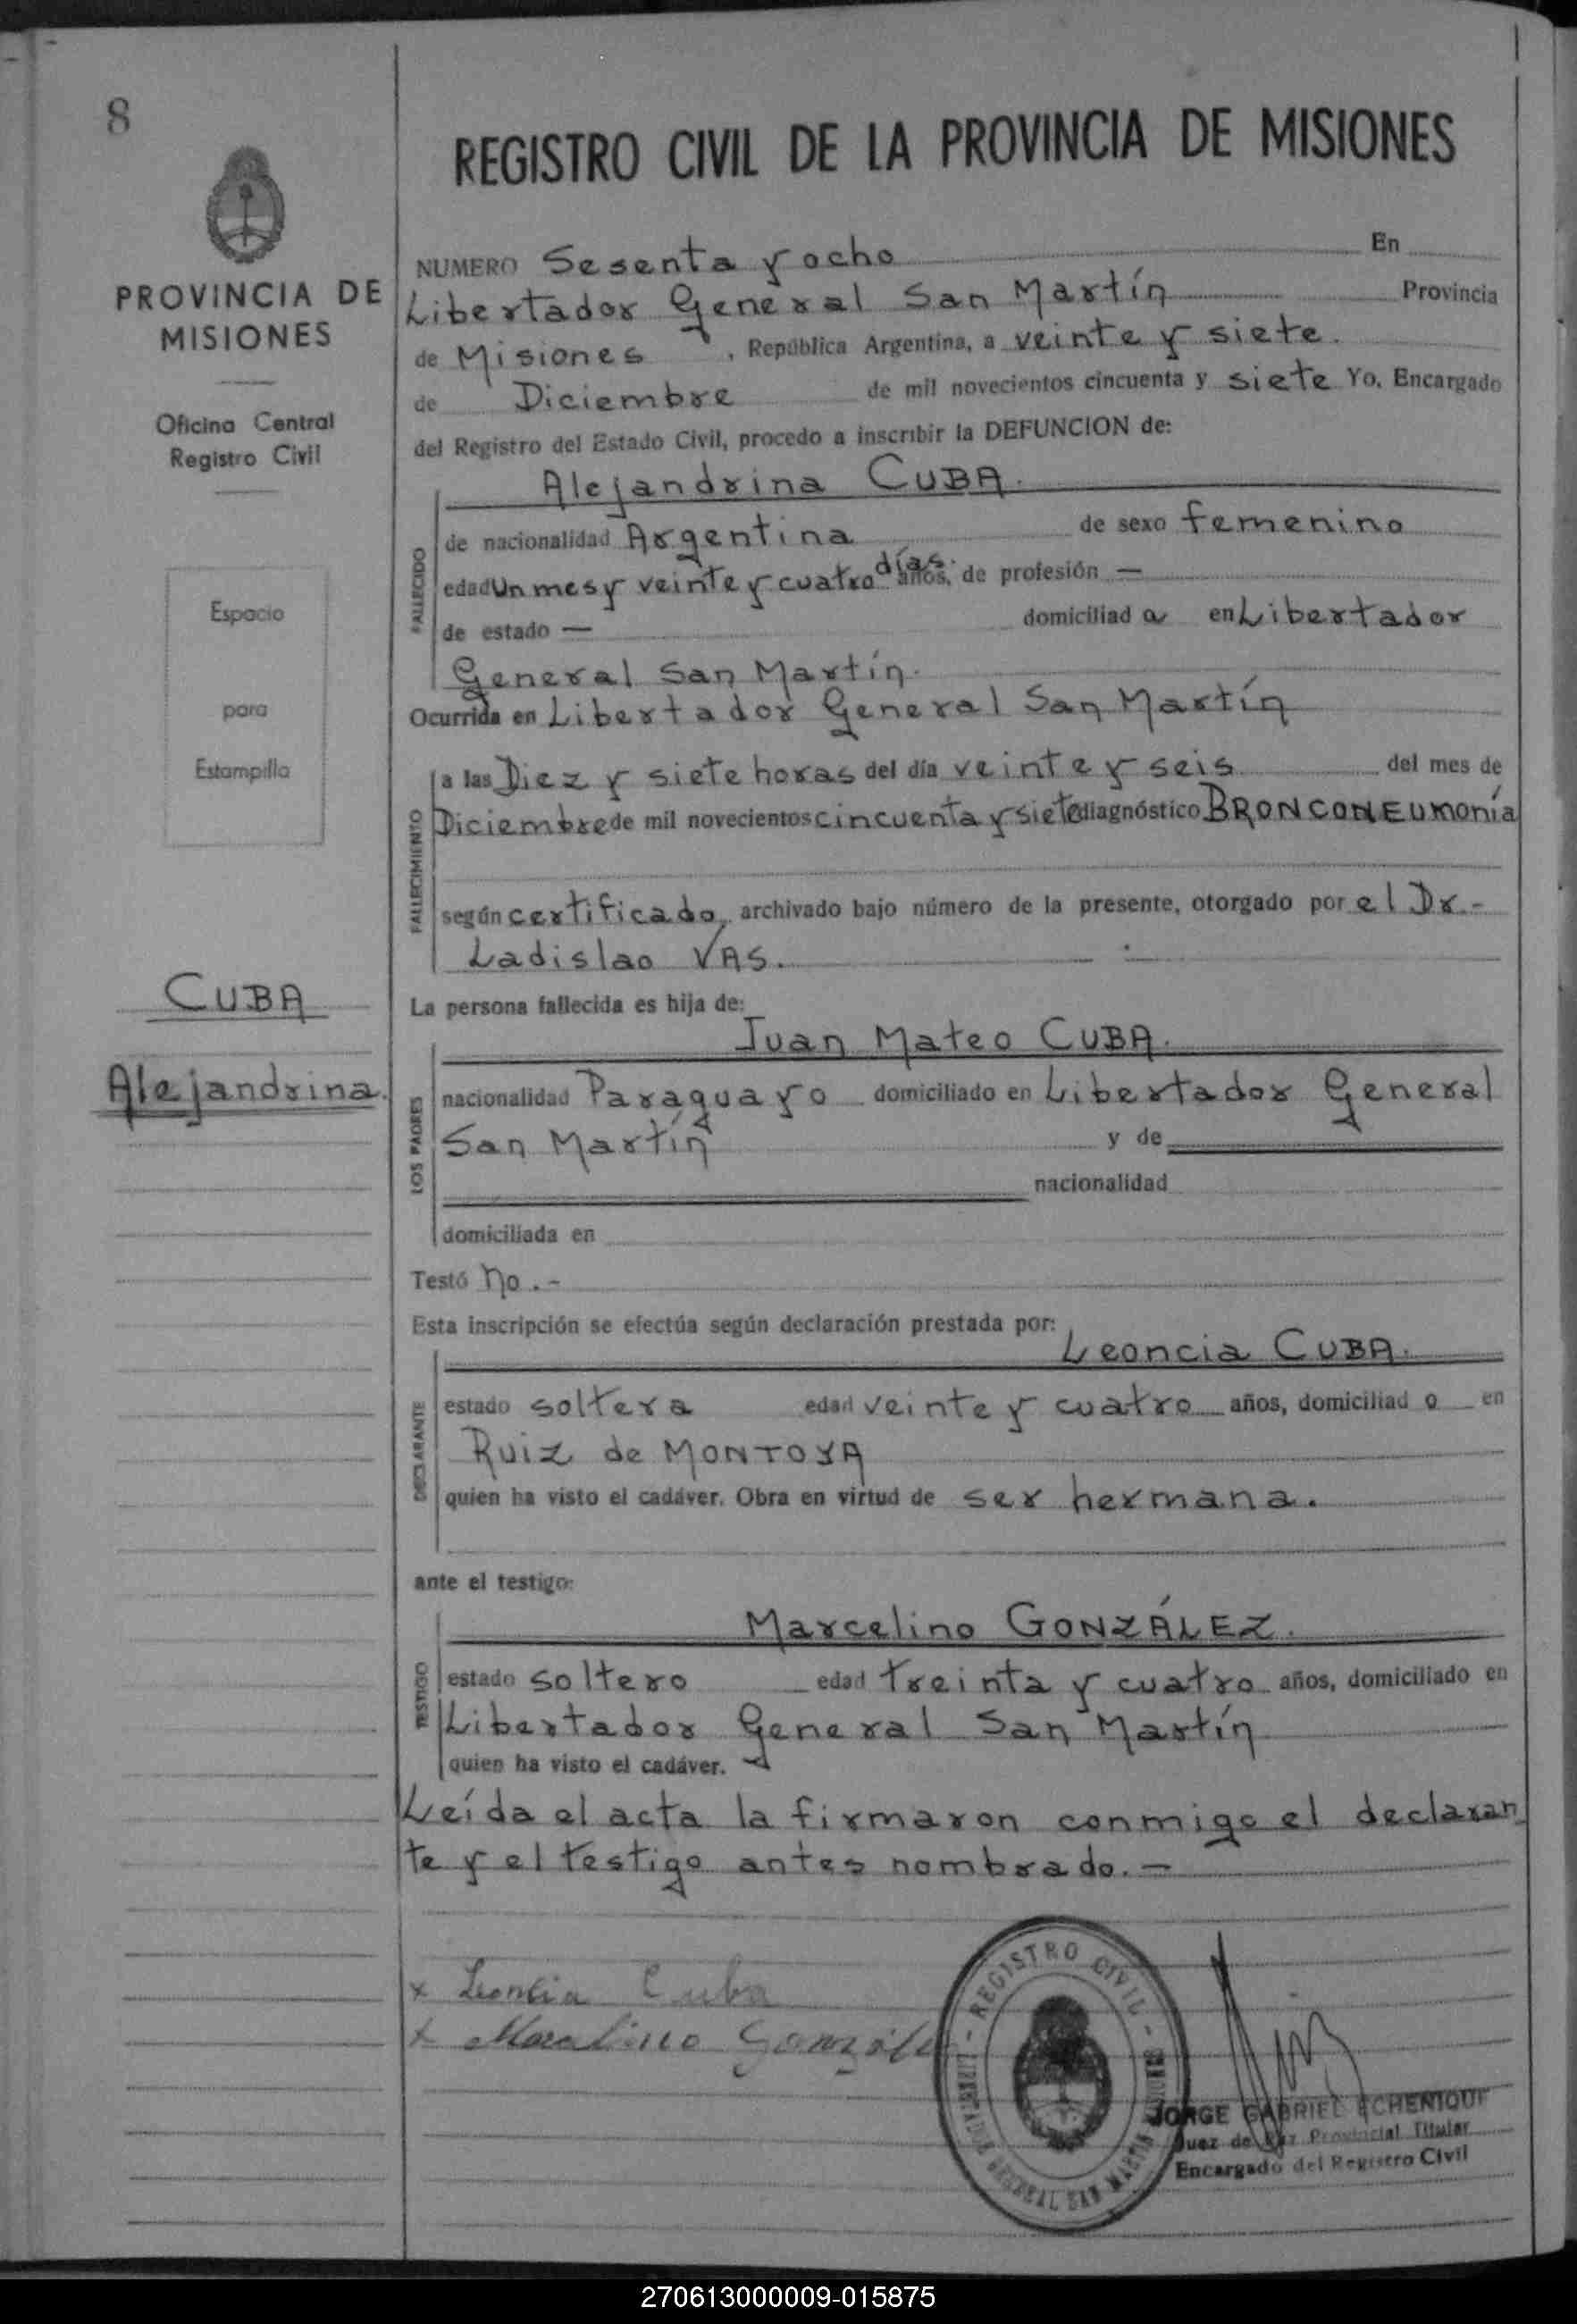 8
PROVINCIA DE
MISIONES
Oficina Central
Registro Civil
Espacio
para
Estampilla
CUBA
Alejandrina.
REGISTRO CIVIL DE LA PROVINCIA DE MISIONES
NUMERO Sesenta y ocho En
Libertador General San Martín Provincia
de Misiones, República Argentina, a veinte y siete.
de Diciembre de mil novecientos cincuenta y siete Yo, Encargado
del Registro del Estado Civil, procedo a inscribir la DEFUNCION de:
Alejandrina CUBA.
FALLECIDO
de nacionalidad Argentina de sexo femenino
edad Un mes y veinte y cuatro días. años, de profesión —
de estado — domiciliad a en Libertador
General San Martín.
Ocurrida en Libertador General San Martín
FALLECIMIENTO
a las Diez y siete horas del día veinte y seis del mes de
Diciembre de mil novecientos cincuenta y siete diagnóstico BRONCONEUMONía
según certificado, archivado bajo número de la presente, otorgado por el Dr.-
Ladislao VAS.
La persona fallecida es hija de:
Juan Mateo CUBA.
LOS PADRES
nacionalidad Paraguayo domiciliado en Libertador General
San Martín y de
nacionalidad
domiciliada en
Testó no.-
Esta inscripción se efectúa según declaración prestada por:
Leoncia CUBA.
DECLARANTE
estado soltera edad veinte y cuatro años, domiciliad o en
Ruiz de MONTOYA
quien ha visto el cadáver. Obra en virtud de ser hermana.
ante el testigo:
Marcelino GONZÁLEZ.
TESTIGO
estado soltero edad treinta y cuatro años, domiciliado en
Libertador General San Martín
quien ha visto el cadáver.
Leída el acta la firmaron conmigo el declaran
te y el testigo antes nombrado.—
x Leoncia Cuba
x Marcelino González
REGISTRO CIVIL - LIBERTADOR GENERAL SAN MARTIN MISIONES -
JORGE GABRIEL ECHENIQUE
Juez de Paz Provincial Titular
Encargado del Registro Civil
270613000009-015875